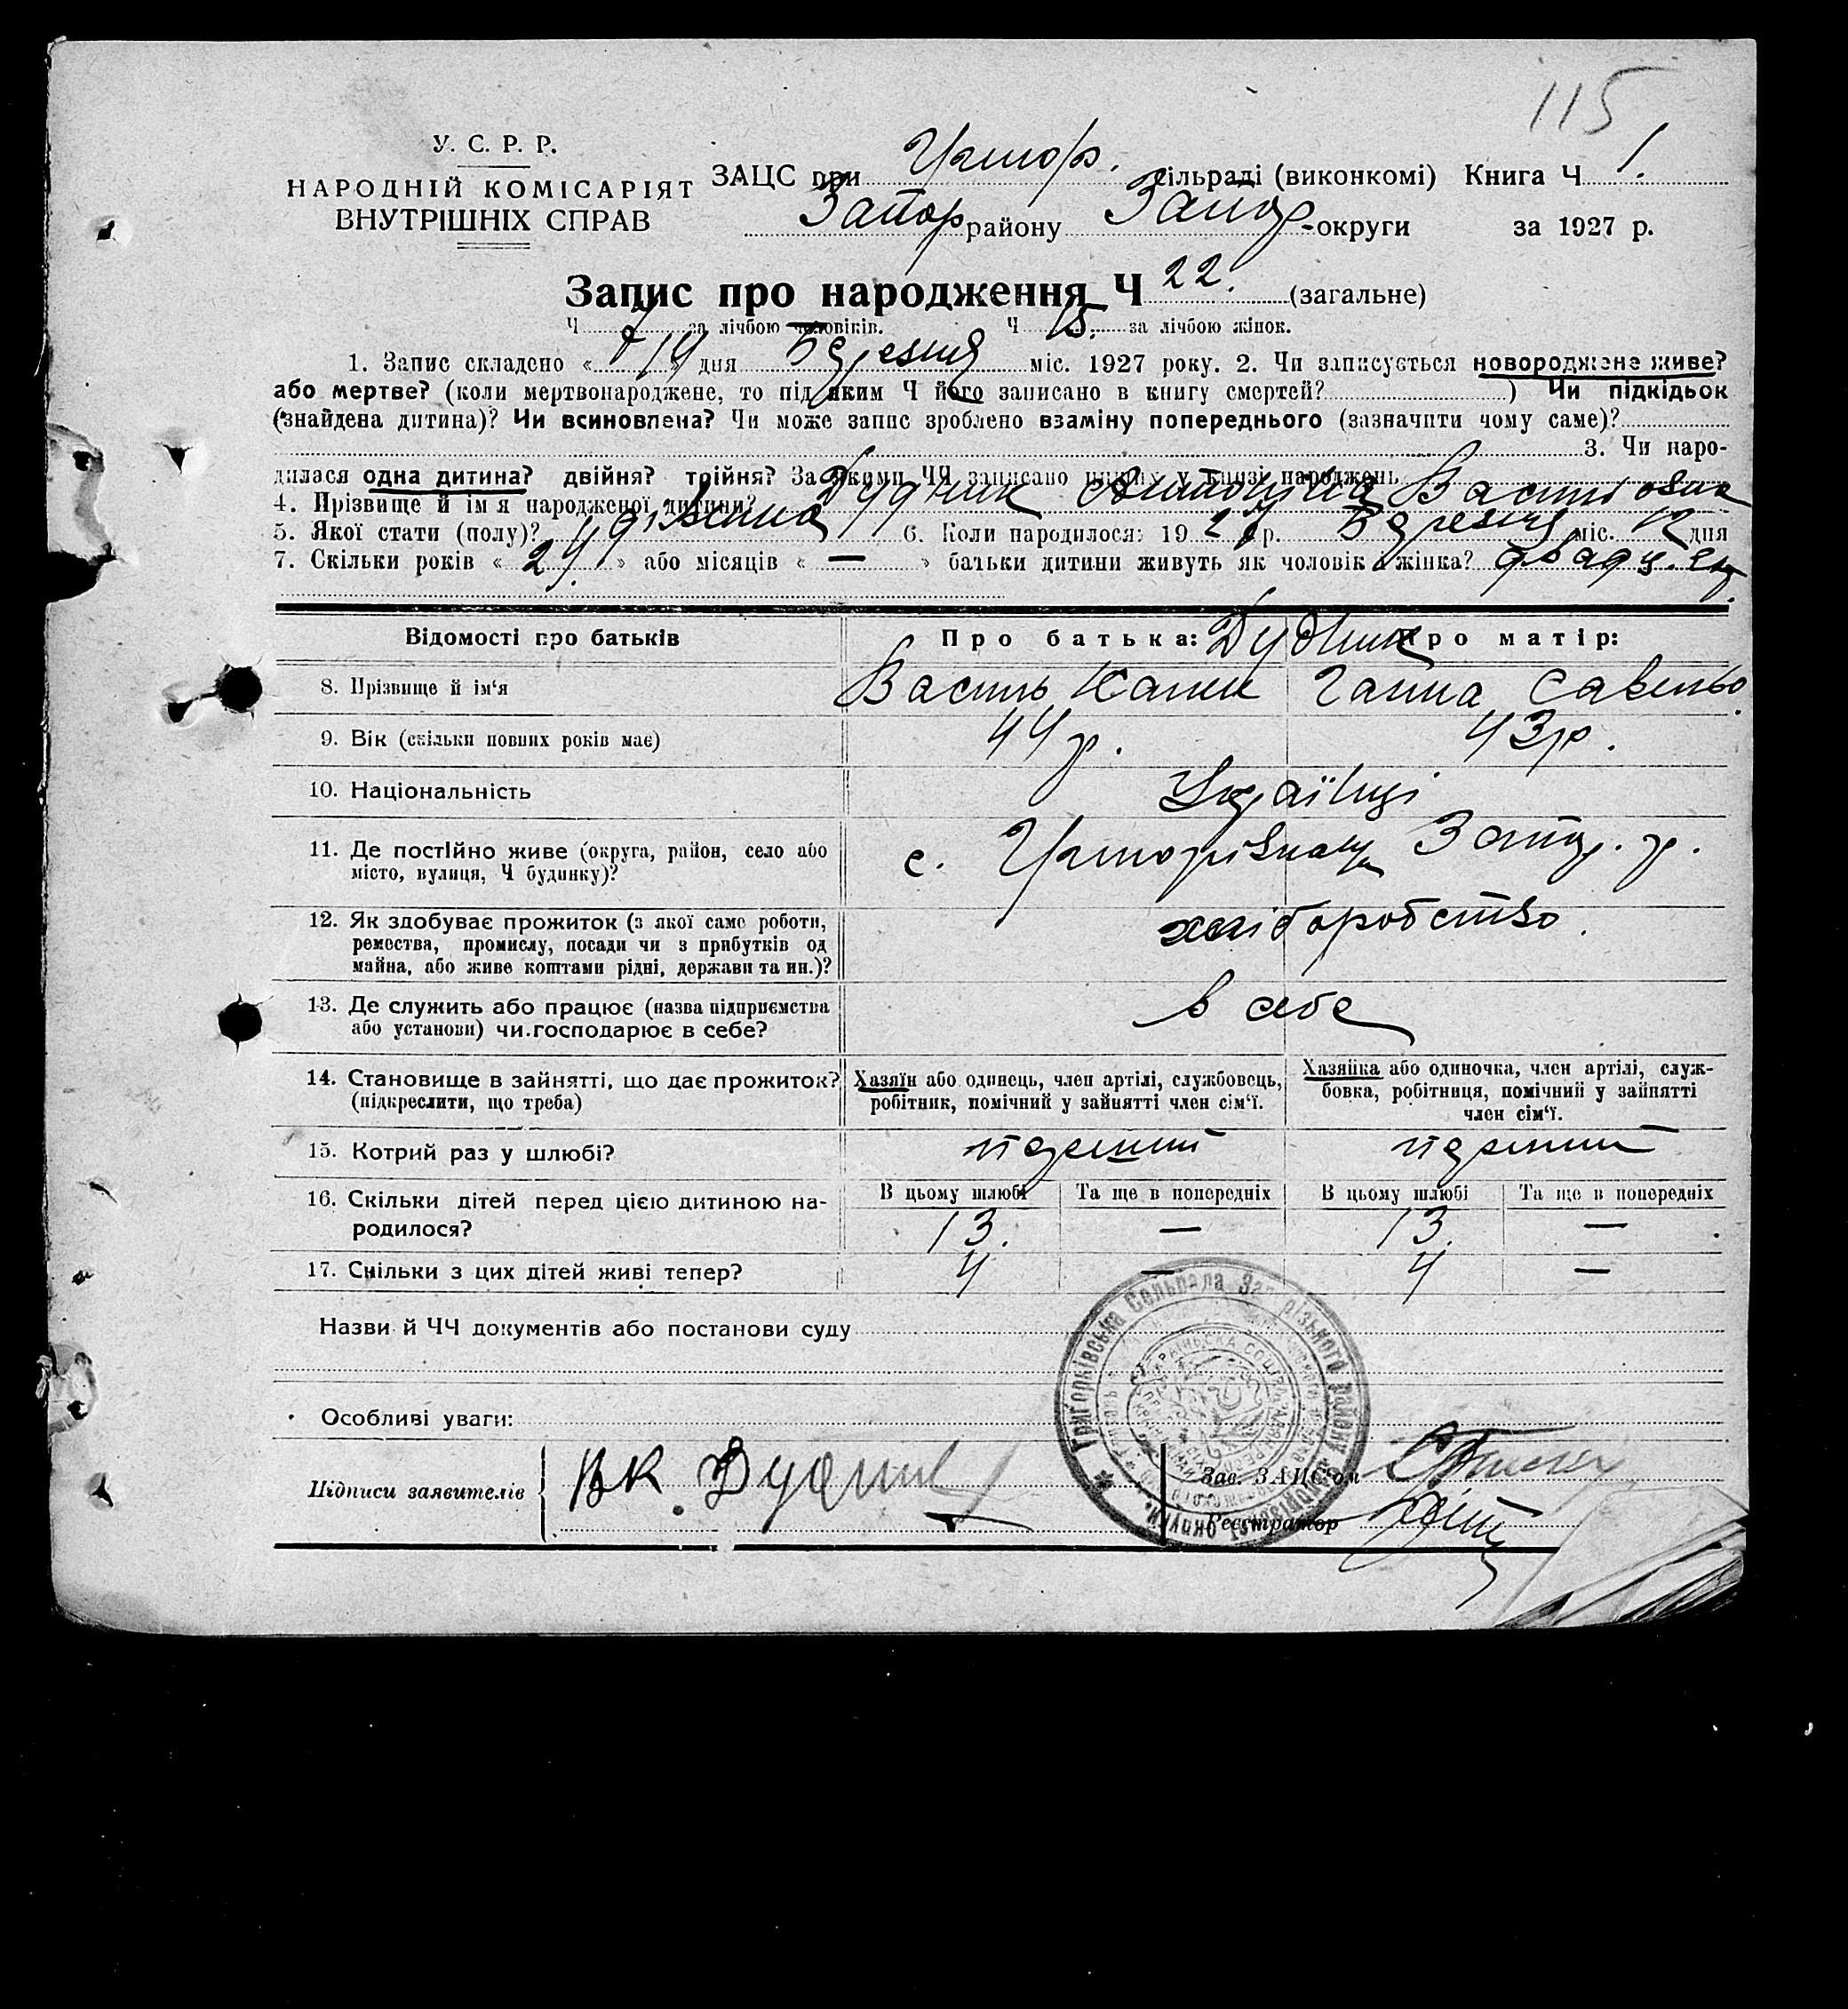 115
У. С. Р. Р.
НАРОДНІЙ КОМІСАРІЯТ
ВНУТРІШНІХ СПРАВ
ЗАЦС при сільраді (виконкомі) Книга Ч 1.
Запор району Запор округи за 1927 р.
Запис про народження Ч 22. (загальне)
Ч 7 за лічбою чоловіків. Ч 15. за лічбою жінок.
1. Запис складено « 14 » дня Березня міс. 1927 року. 2. Чи записується новороджене живе?
або мертве? (коли мертвонароджене, то під яким Ч його записано в книгу смертей? ) Чи підкідьок
(знайдена дитина)? Чи всиновлена? Чи може запис зроблено взаміну попереднього (зазначити чому саме)?
3. Чи наро-
дилася одна дитина? двійня? трійня? За якими ЧЧ записано инших у книзі народжень
4. Прізвище й ім'я народженої дитини? Дудник Василівна
5. Якої стати (полу)? 6. Коли народилося: 1927 р. Березня міс. 12 дня
7. Скільки років « 24 » або місяців « — » батьки дитини живуть як чоловік і жінка?
Відомості про батьків Про батька: Дудник Про матір:
8. Прізвище й ім'я Василь Ганна
9. Вік (скільки повних років має) 44 р. 43 р.
10. Національність Українці
11. Де постійно живе (округа, район, село або
місто, вулиця, Ч будинку)? с. Запор. р.
12. Як здобуває прожиток (з якої саме роботи,
ремества, промислу, посади чи з прибутків од
майна, або живе коштами рідні, держави та ин.)? хліборобство.
13. Де служить або працює (назва підприємства
або установи) чи господарює в себе? в себе
14. Становище в зайнятті, що дає прожиток?
(підкреслити, що треба)
Хазяїн або одинець, член артілі, службовець,
робітник, помічний у зайнятті член сім'ї.
Хазяйка або одиночка, член артілі, служ-
бовка, робітниця, помічний у зайнятті
член сім'ї.
15. Котрий раз у шлюбі? первий первий
16. Скільки дітей перед цією дитиною на-
родилося?
В цьому шлюбі Та ще в попередніх В цьому шлюбі Та ще в попередніх
13. — 13. —
17. Скільки з цих дітей живі тепер? 4 — 4 —
Назви й ЧЧ документів або постанови суду
Особливі уваги:
Григорківська Сельрада Запорізького району Запорізської округи.
Підписи заявителів ВК. Дудник
Зав. ЗАЦС'ом
Реєстратор